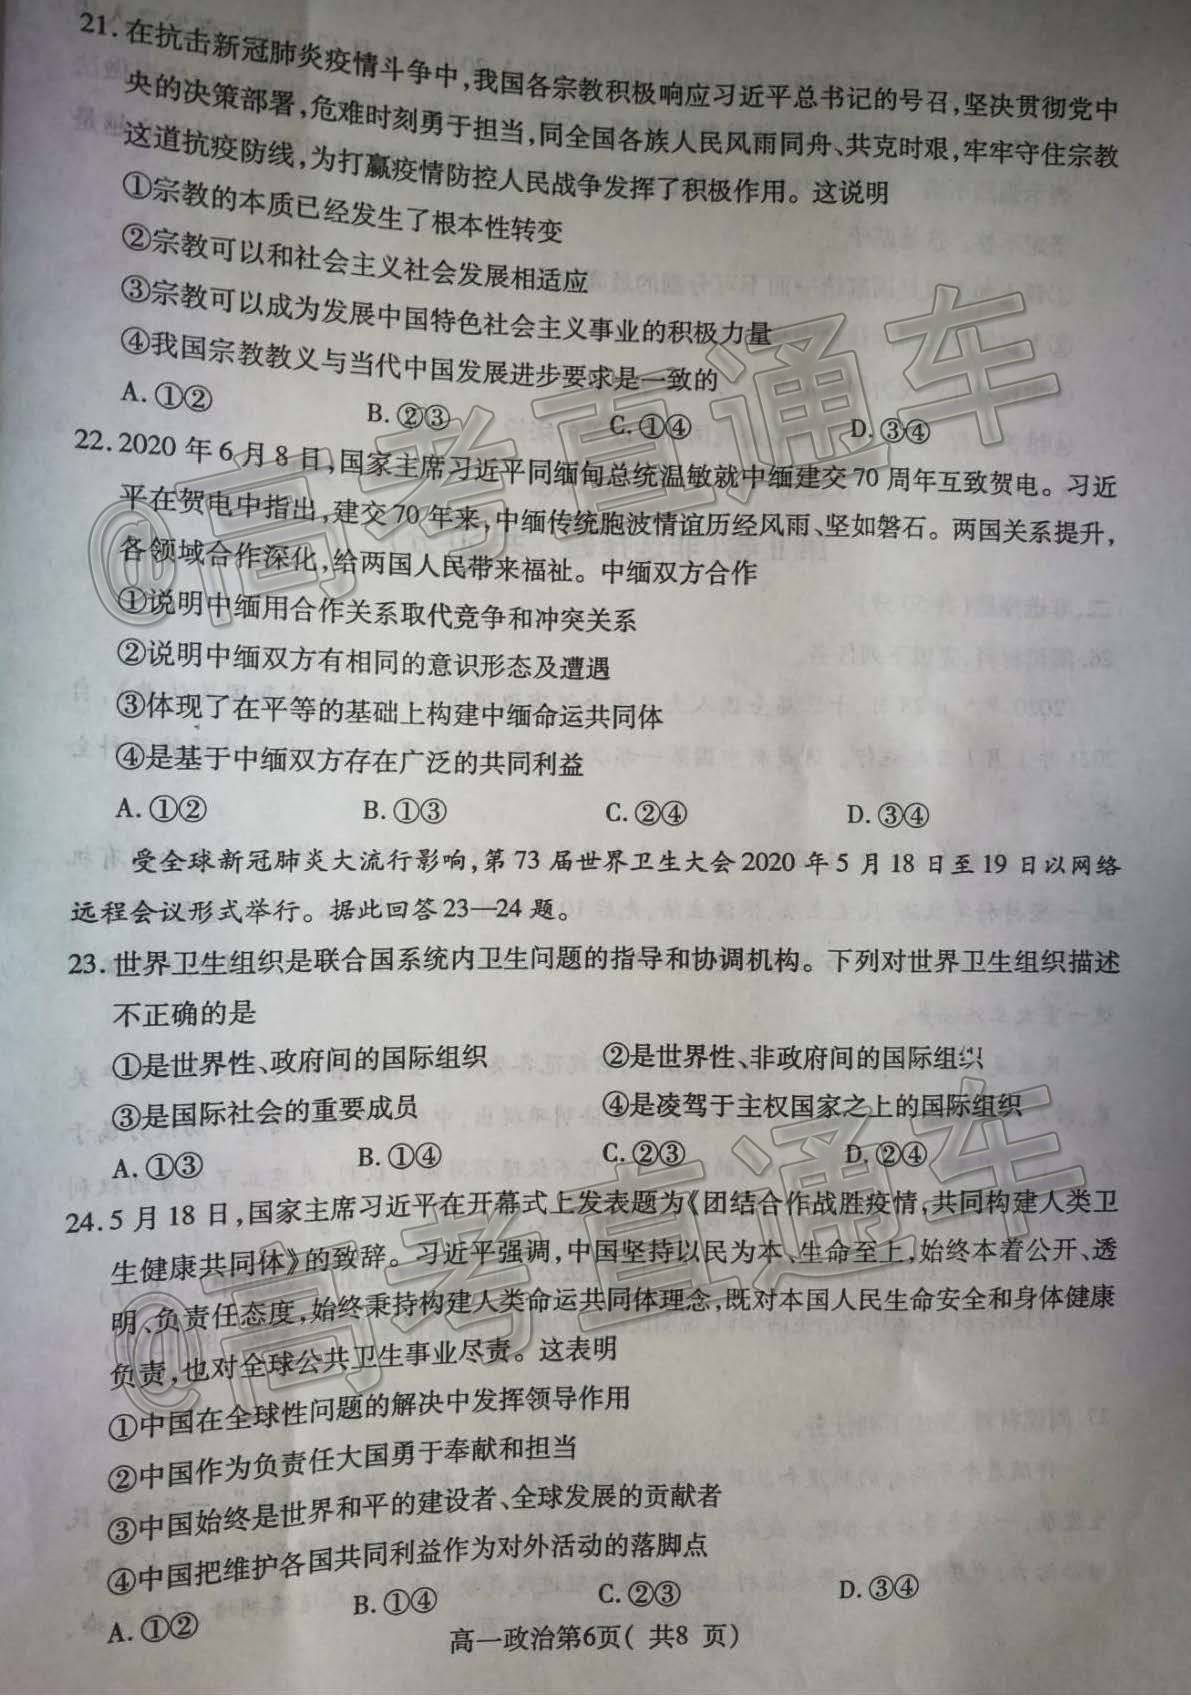 21. 在抗击新冠肺炎疫情斗争中,我国各宗教积极响应习近平总书记的号召,坚决贯彻党中
央的决策部署,危难时刻勇于担当,同全国各族人民风雨同舟、共克时艰,牢牢守住宗教
这道抗疫防线,为打赢疫情防控人民战争发挥了积极作用。这说明
①宗教的本质已经发生了根本性转变
②宗教可以和社会主义社会发展相适应
③宗教可以成为发展中国特色社会主义事业的积极力量
④我国宗教教义与当代中国发展进步要求是一致的
A. ①② B. ②③ C. ①④ D. ③④
22. 2020年6月8日,国家主席习近平同缅甸总统温敏就中缅建交70周年互致贺电。习近
平在贺电中指出,建交70年来,中缅传统胞波情谊历经风雨、坚如磐石。两国关系提升,
各领域合作深化,给两国人民带来福祉。中缅双方合作
①说明中缅用合作关系取代竞争和冲突关系
②说明中缅双方有相同的意识形态及遭遇
③体现了在平等的基础上构建中缅命运共同体
④是基于中缅双方存在广泛的共同利益
A. ①② B. ①③ C. ②④ D. ③④
受全球新冠肺炎大流行影响,第73届世界卫生大会2020年5月18日至19日以网络
远程会议形式举行。据此回答23—24题。
23. 世界卫生组织是联合国系统内卫生问题的指导和协调机构。下列对世界卫生组织描述
不正确的是
①是世界性、政府间的国际组织 ②是世界性、非政府间的国际组织
③是国际社会的重要成员 ④是凌驾于主权国家之上的国际组织
A. ①③ B. ①④ C. ②③ D. ②④
24. 5月18日,国家主席习近平在开幕式上发表题为《团结合作战胜疫情,共同构建人类卫
生健康共同体》的致辞。习近平强调,中国坚持以民为本、生命至上,始终本着公开、透
明、负责任态度,始终秉持构建人类命运共同体理念,既对本国人民生命安全和身体健康
负责,也对全球公共卫生事业尽责。这表明
①中国在全球性问题的解决中发挥领导作用
②中国作为负责任大国勇于奉献和担当
③中国始终是世界和平的建设者、全球发展的贡献者
④中国把维护各国共同利益作为对外活动的落脚点
A. ①② B. ①④ C. ②③ D. ③④
高一政治第6页( 共8 页)
@高考直通车
@高考直通车